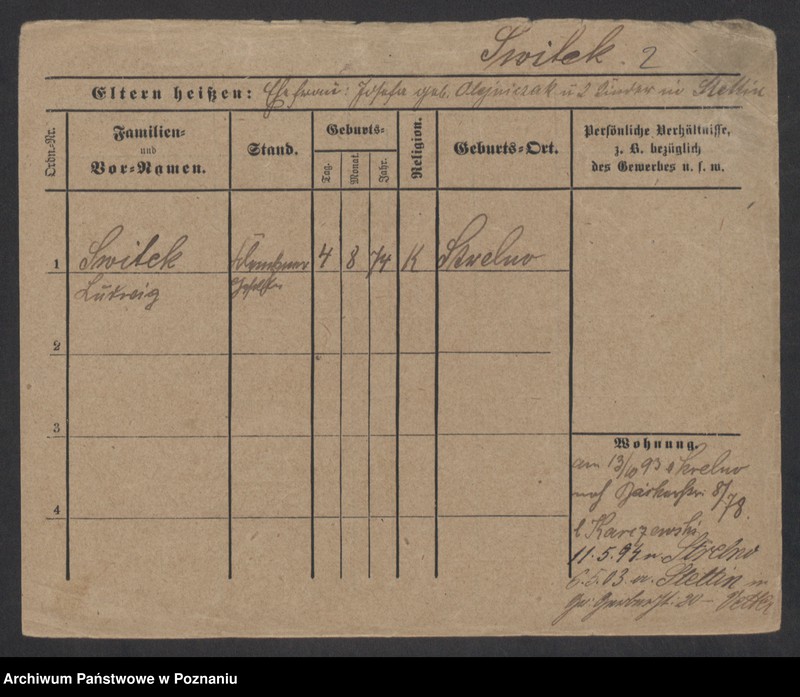 Switek. 2
Eltern heißen: Ehefrau: Josefa geb. Olejniczak u 2 Kinder in Stettin
Ordn.-Nr.
Familien-
und
Vor-Namen.
Stand.
Geburts-
Tag.
Monat.
Jahr.
Religion.
Geburts-Ort.
Persönliche Verhältnisse,
z. B. bezüglich
des Gewerbes u. s. w.
1 Switek 4 8 74 K Strelno
Ludwig
2
3
4
Wohnung.
am 13/10 93 Strelno
8/78.
b Karczewski
11.5.94 n. Strelno
6.5.03 n. Stettin in
Gr. 20 –
Archiwum Państwowe w Poznaniu